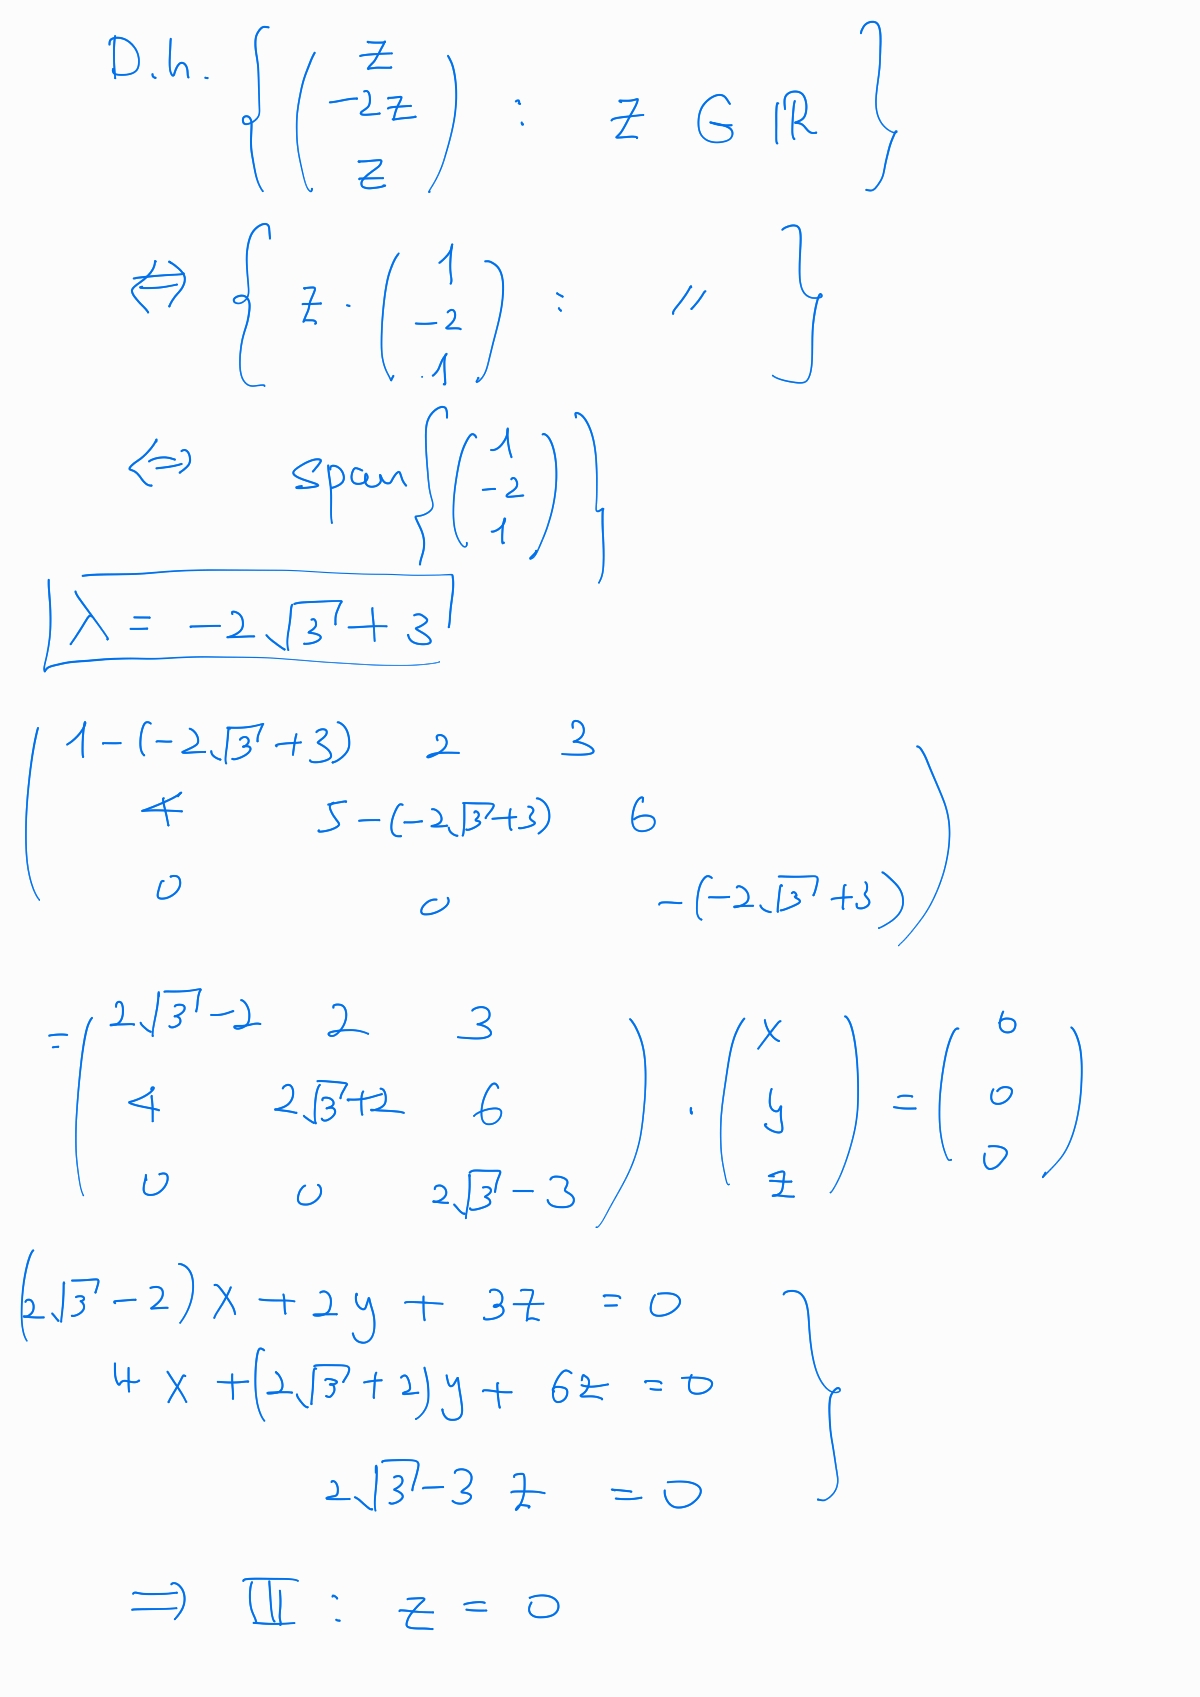 D.h. { ( z -2z z ) : z ∈ ℝ }
⇔ { z · ( 1 -2 1 ) : 〃 }
⇔ span { ( 1 -2 1 ) }
λ = -2√3 + 3
( 1-(-2√3+3) 2 3
4 5-(-2√3+3) 6
0 0 -(-2√3+3) )
= ( 2√3-2 2 3
4 2√3+2 6
0 0 2√3-3 ) · ( x y z ) = ( 0 0 0 )
(2√3-2)x + 2y + 3z = 0
4x + (2√3+2)y + 6z = 0 }
2√3-3 z = 0
⇒ III : z = 0